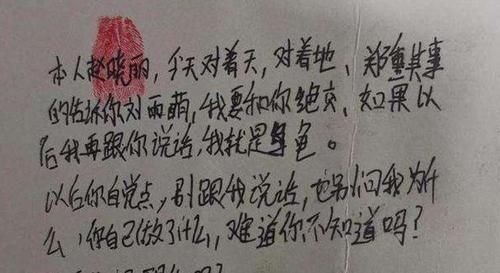 本人赵晓丽，今天对着天，对着地、郑重其事
的告诉你刘雨萌，我要和你绝交，如果以
后我再跟你说话，我就是龟。
以后你自觉点，别跟我说话，也别问我为什
么，你自己做了什么，难道你不知道吗？